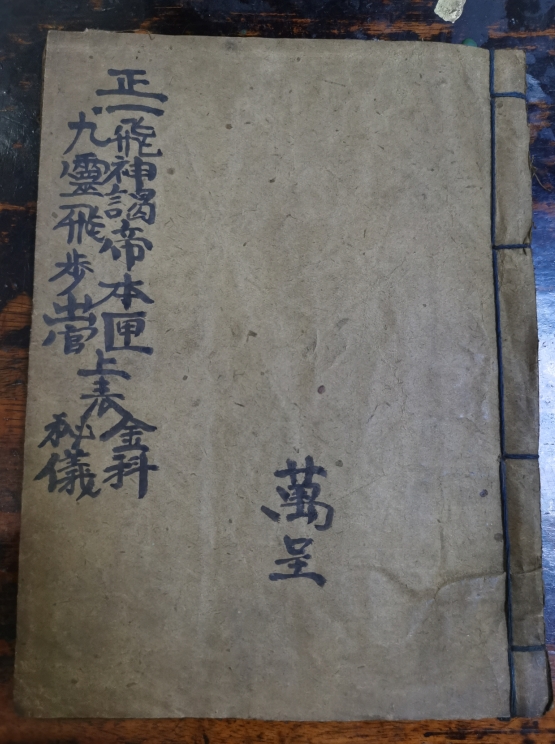 萬呈
正一飛神謁帝本匣
九靈飛步
上表
金科
秘儀